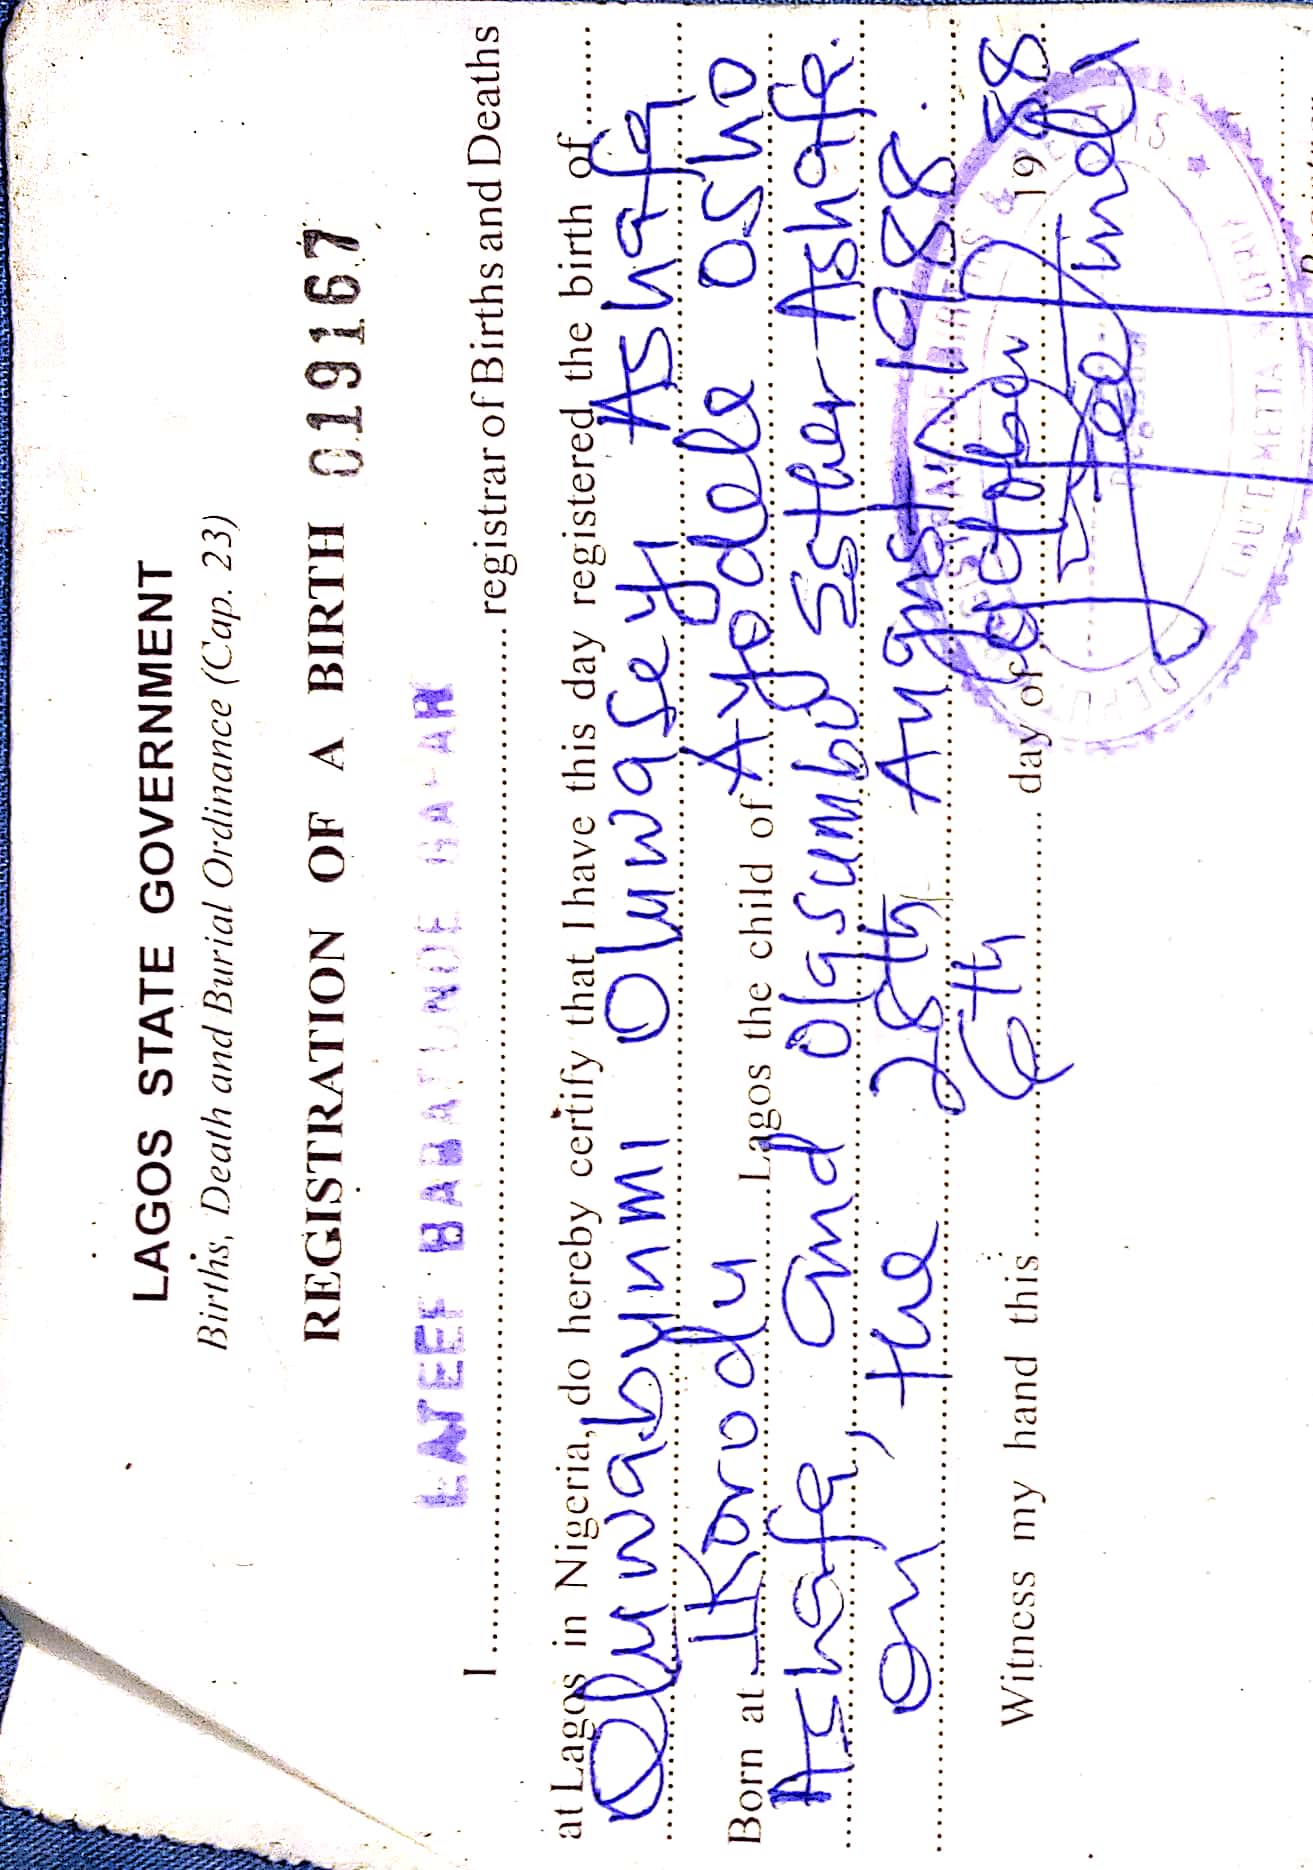 LAGOS STATE GOVERNMENT
Births, Death and Burial Ordinance (Cap. 23)
REGISTRATION OF A BIRTH 019167
LATEEF BABATUNDE
I .......... registrar of Births and Deaths
at Lagos in Nigeria, do hereby certify that I have this day registered the birth of ......
Oluwabunmi Oluwaseyi Ashafa
Born at Ikorodu Lagos the child of Ayodele Osho
Ashafa and Olasumbo Esther Ashafa.
on, the 28th August 1988.
Witness my hand this 6th day of October 1988